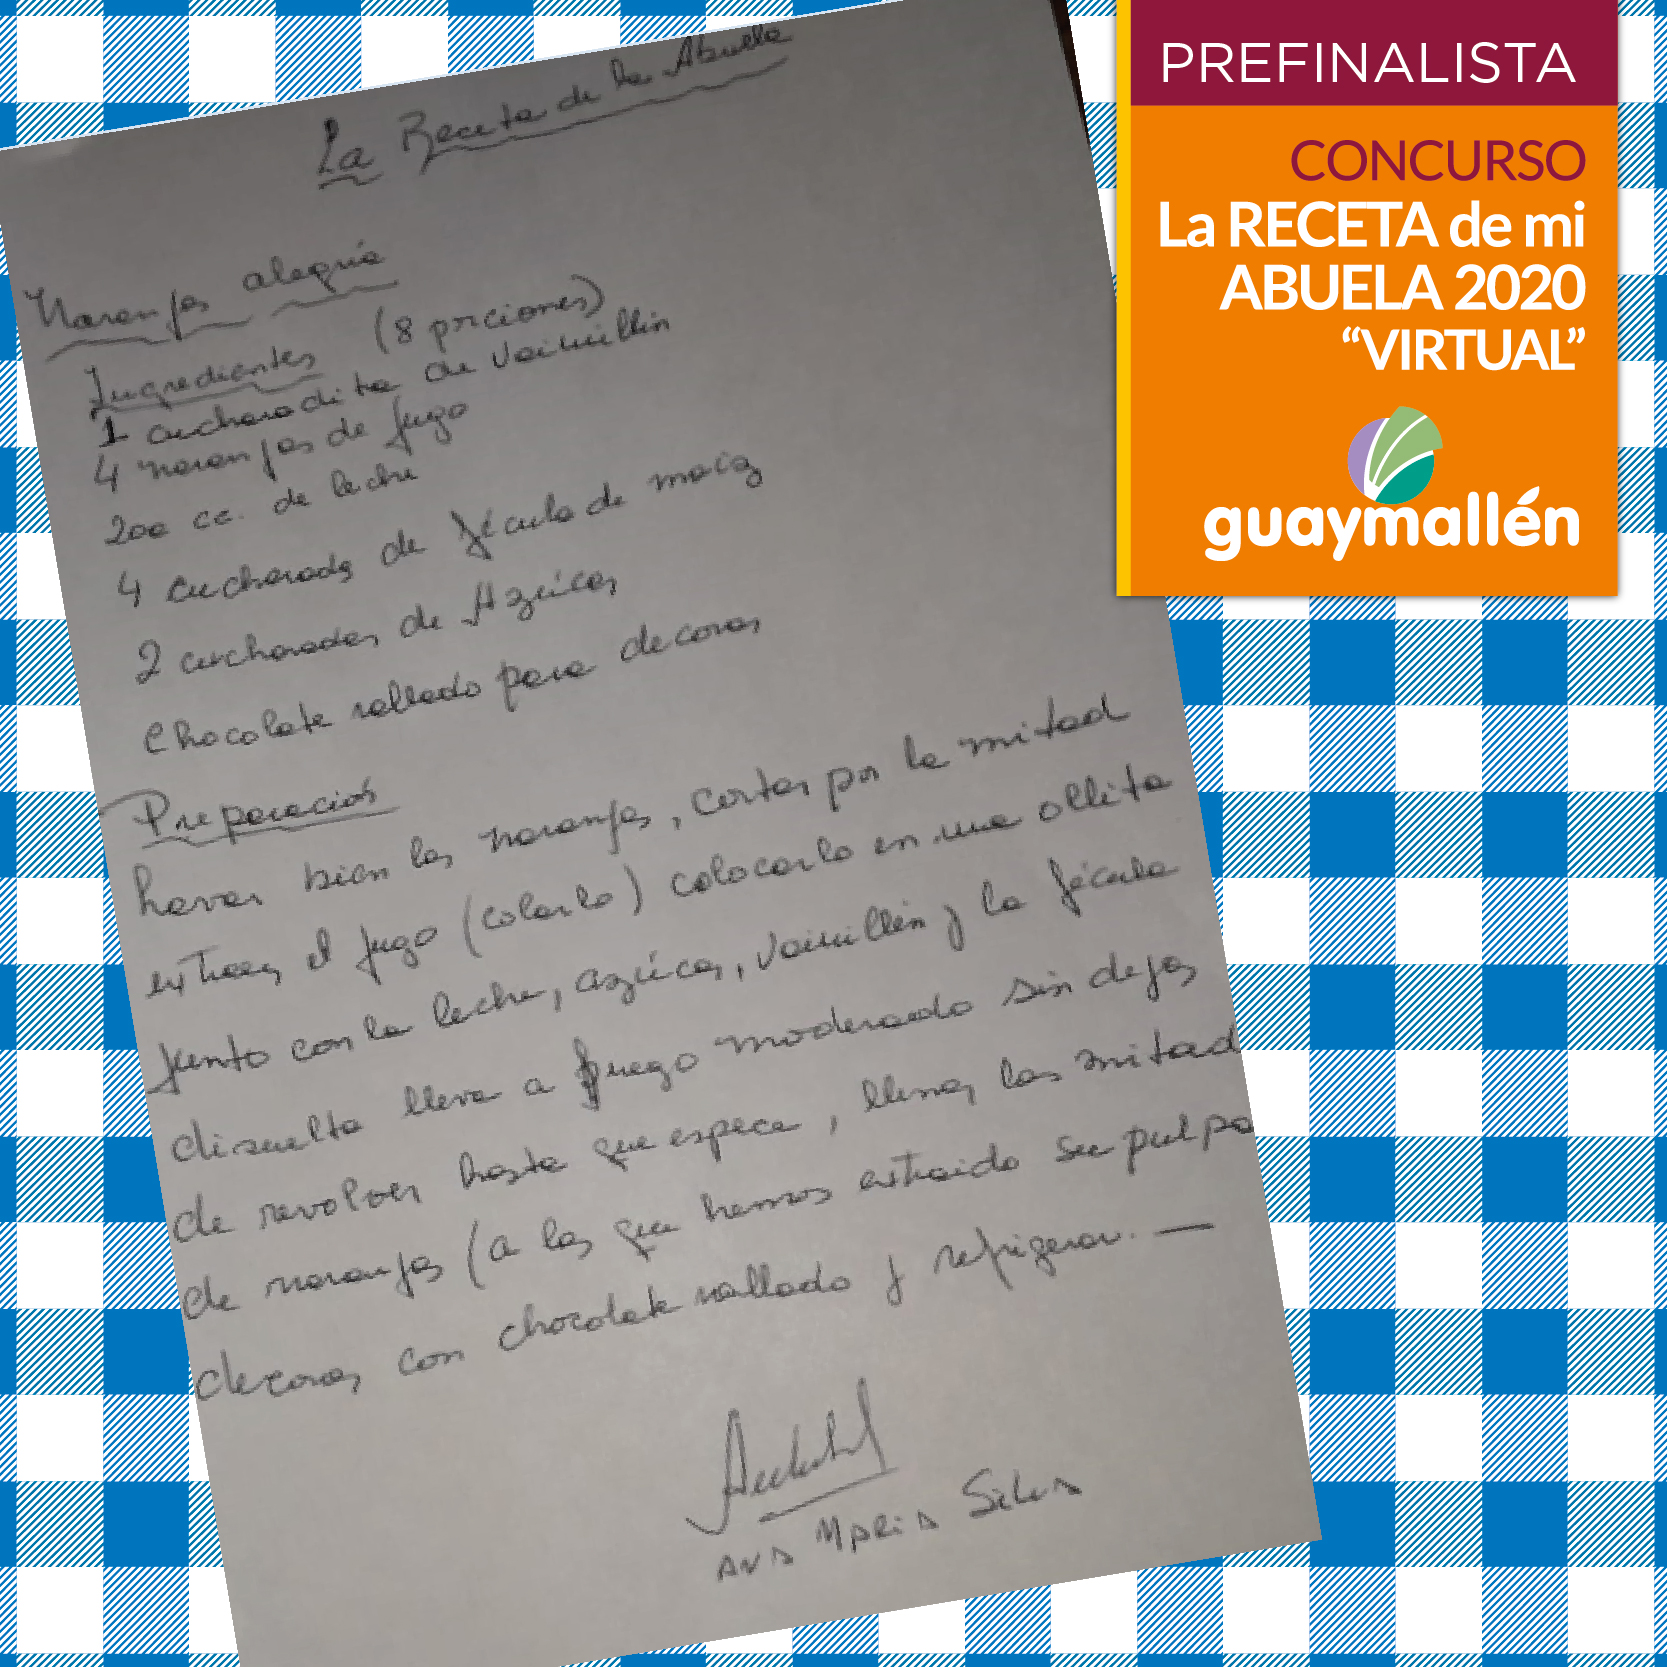 La Receta de la Abuela
Naranjas alegria
Ingredientes (8 porciones)
1 cucharadita de vainillin
4 naranjas de jugo
200 cc. de leche
4 cucharadas de fécula de maiz
2 cucharadas de Azúcar
Chocolate rallado para decorar
Preparación
Lavar bien las naranjas, cortar por la mitad
extraer el jugo (colarlo) colocarlo en una ollita
junto con la leche, azúcar, vainillin y la fécula
disuelta lleva a fuego moderado sin dejar
de revolver hasta que espece, llenar las mitad
de naranjas (a las que hemos extraido su pulpa
decorar con chocolate rallado y refrigerar. —
ANA MARIA Silva
PREFINALISTA
CONCURSO
La RECETA de mi
ABUELA 2020
“VIRTUAL”
guaymallén